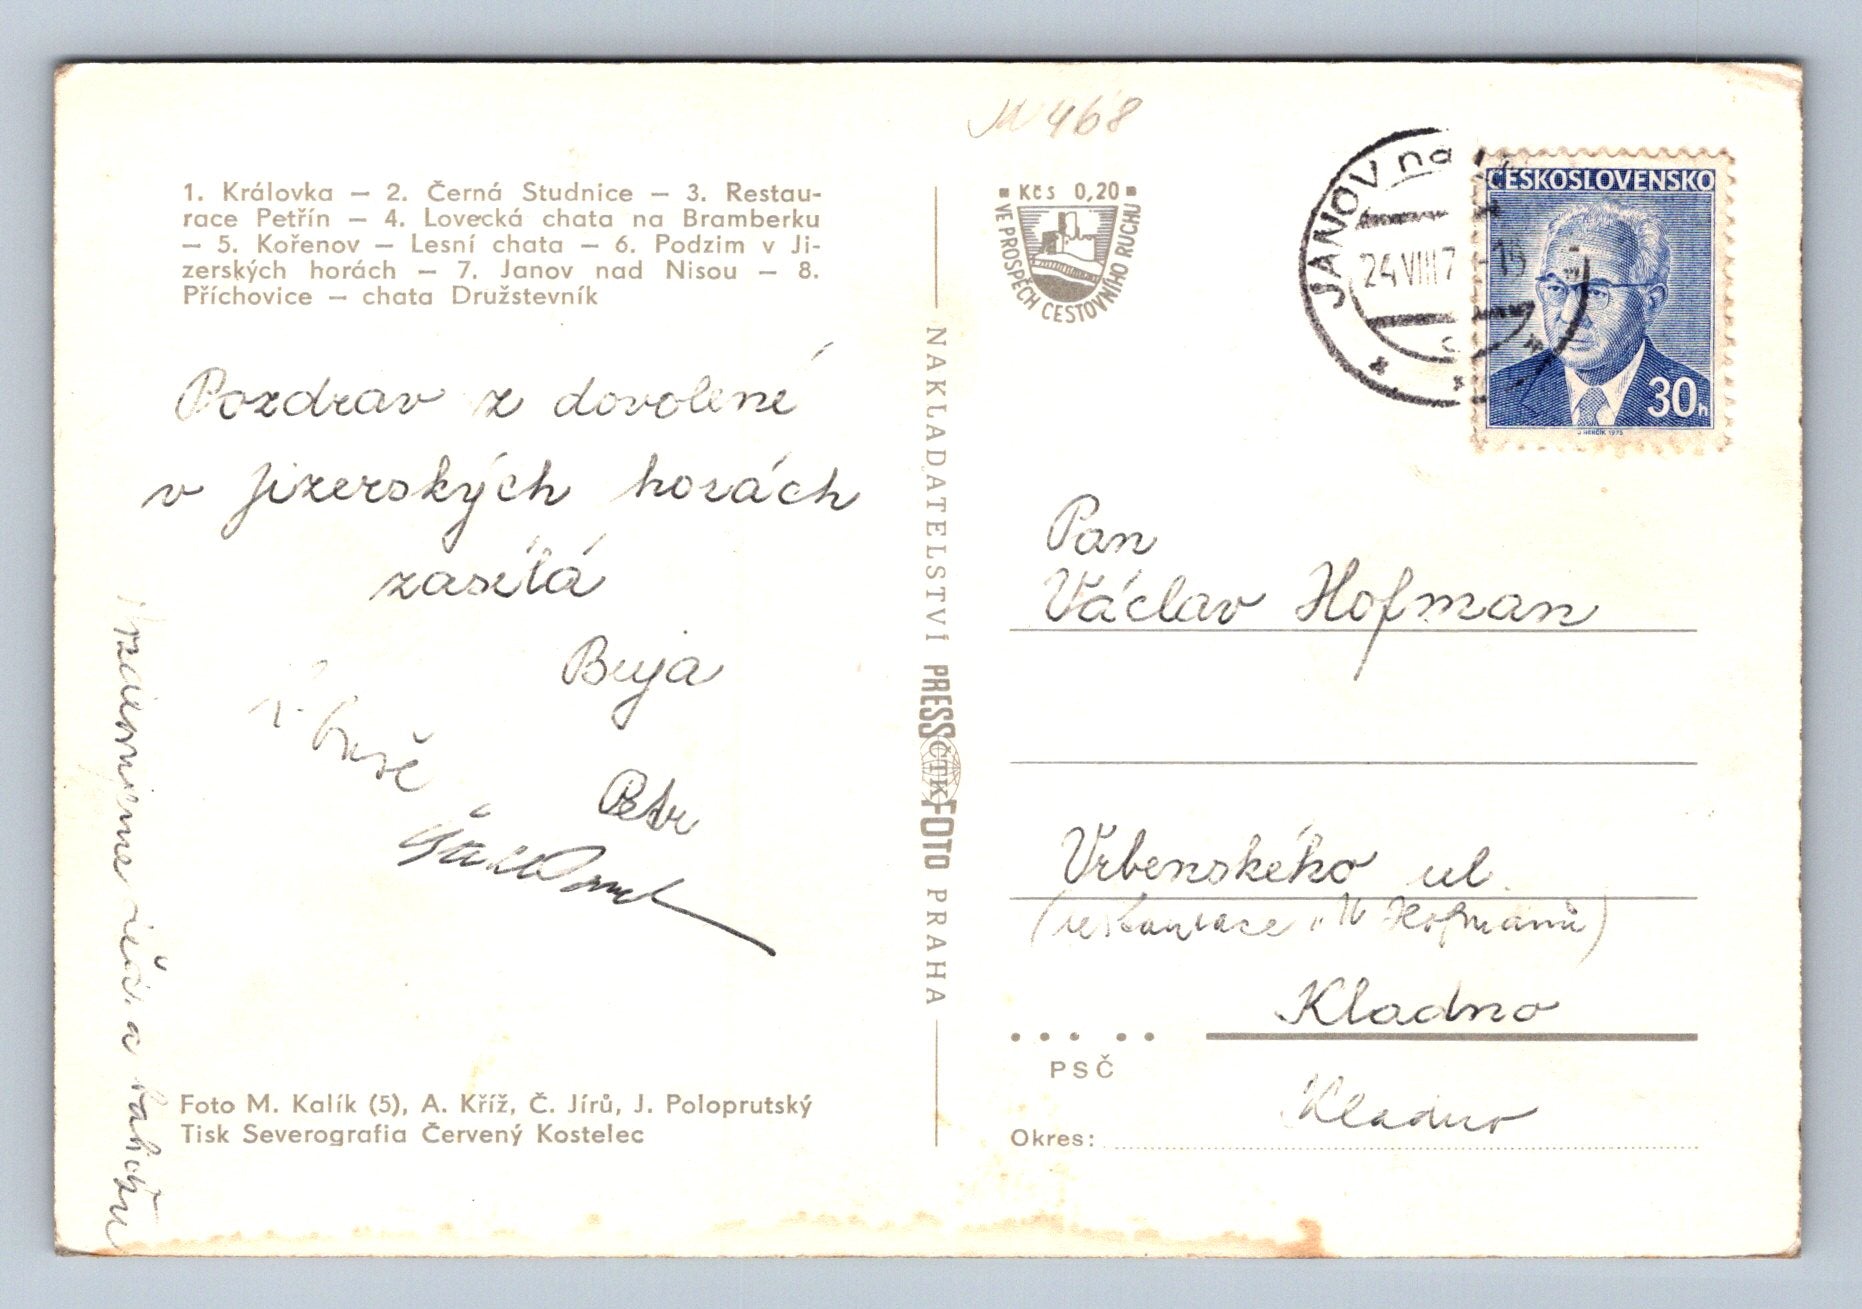 JN 468
1. Královka — 2. Černá Studnice — 3. Restau-
race Petřín — 4. Lovecká chata na Bramberku
— 5. Kořenov — Lesní chata — 6. Podzim v Ji-
zerských horách — 7. Janov nad Nisou — 8.
Příchovice — chata Družstevník
Pozdrav z dovolené
v Jizerských horách
zasílá
Buja
Petr
a
Foto M. Kalík (5), A. Kříž, Č. Jírů, J. Poloprutský
Tisk Severografia Červený Kostelec
NAKLADATELSTVÍ PRESSFOTO PRAHA
ČTK
Kčs 0,20
VE PROSPĚCH CESTOVNÍHO RUCHU
JANOV na
24.VIII.7 -15
ČESKOSLOVENSKO
30h
Pan
Václav Hofman
Vrbenského ul.
(restaurace "U Hofmanů)
Kladno
PSČ
Kladno
Okres: